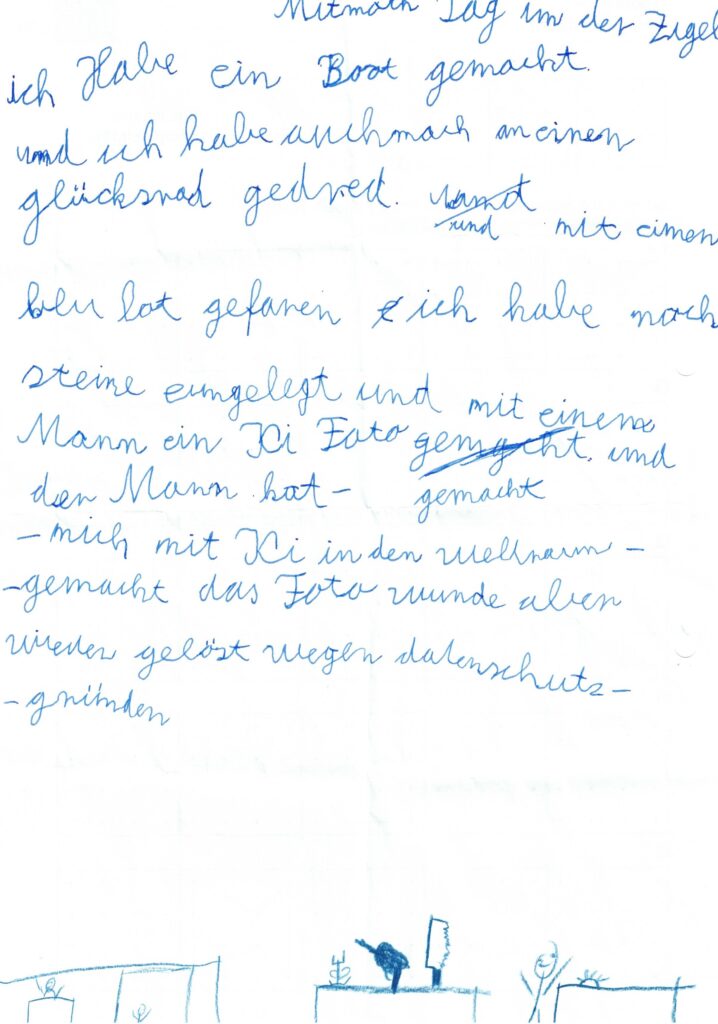 Mitmach Tag im der Zigel
ich Habe ein Boot gemacht.
und ich habe auch nach an einen
glücksrad gedred. und
und mit einen
blu bot gefaren ich habe noch
steine eingelegt und mit einem
Mann ein Ki Foto gemacht. und
den Mann hat- gemacht
-mich mit Ki in den wellraum-
-gemacht das Foto wurde aber
wieder gelöst wegen datenschutz-
-gründen